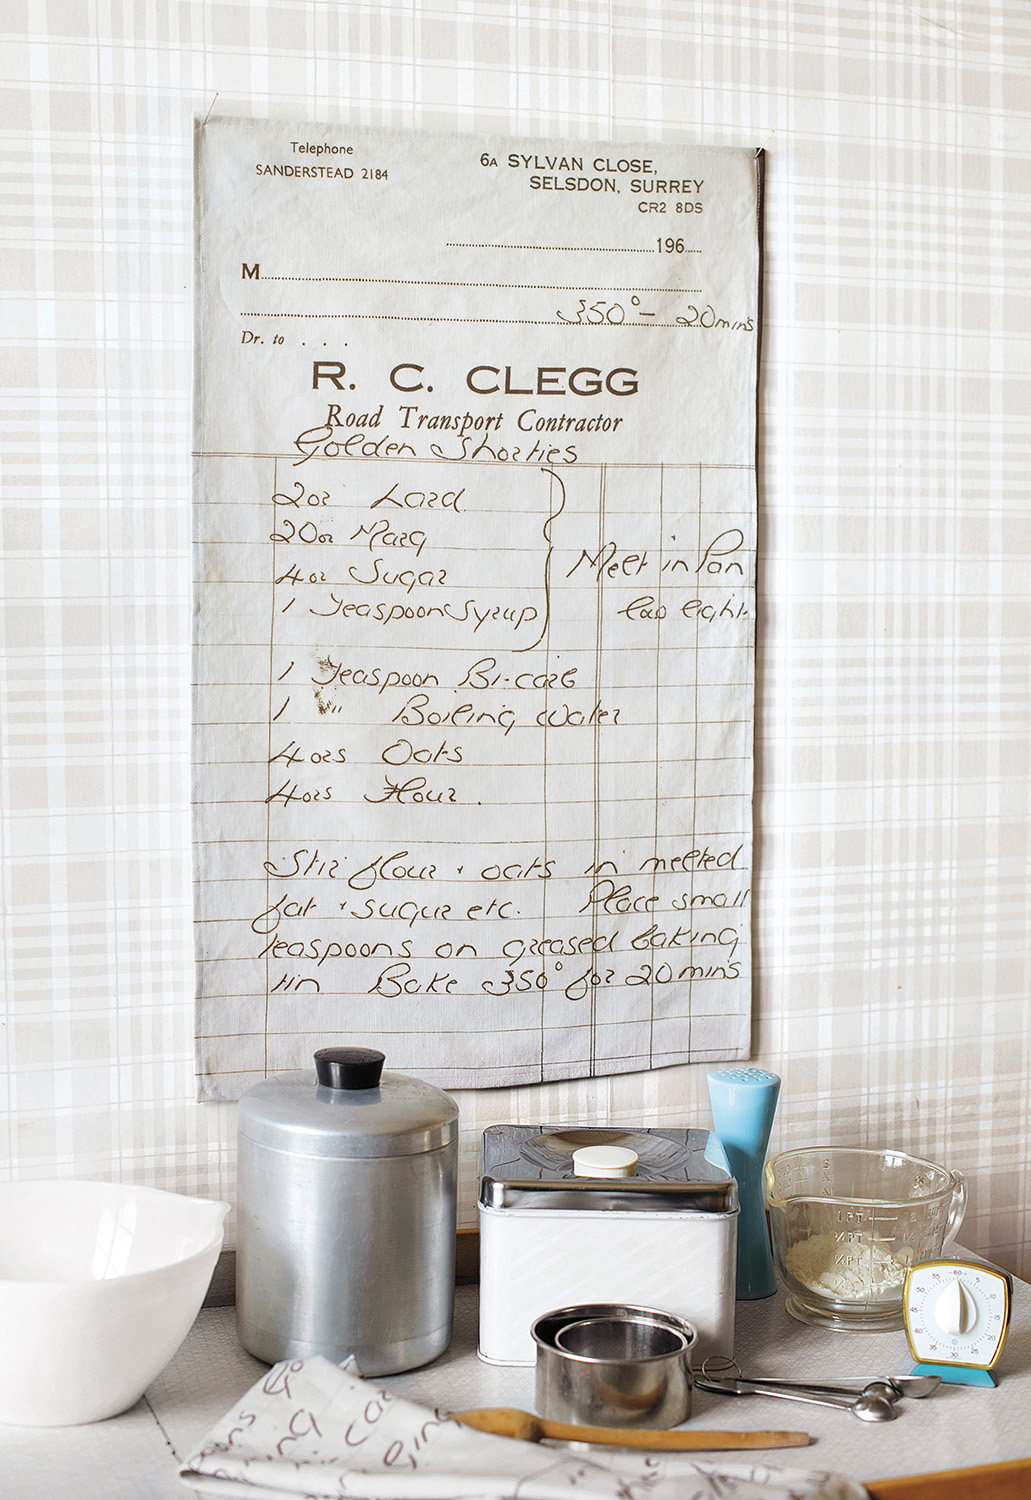 Telephone
SANDERSTEAD 2184
6A SYLVAN CLOSE,
SELSDON, SURREY
CR2 8DS
196
M
350° – 20mins
Dr. to . . .
R. C. CLEGG
Road Transport Contractor
Golden Shorties
2oz Lard
2oz Marg
4oz Sugar
1 Teaspoon Syrup
Melt in Pan
low light
1 Teaspoon Bi-carb
1 " Boiling Water
4ozs Oats
4ozs Flour.
Stir flour + oats in melted
fat + sugar etc. Place small
teaspoons on greased baking
tin Bake 350° for 20 mins
1 PT
60
5
10
15
20
25
30
35
45
50
55